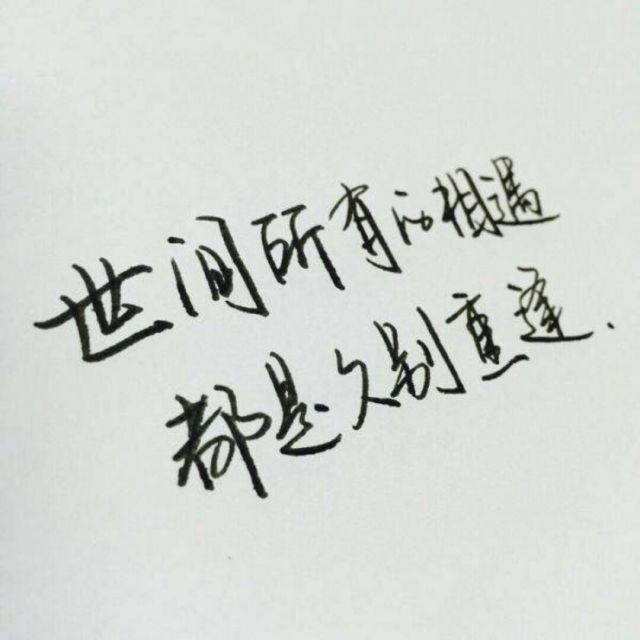 世间所有的相遇
都是久别重逢.